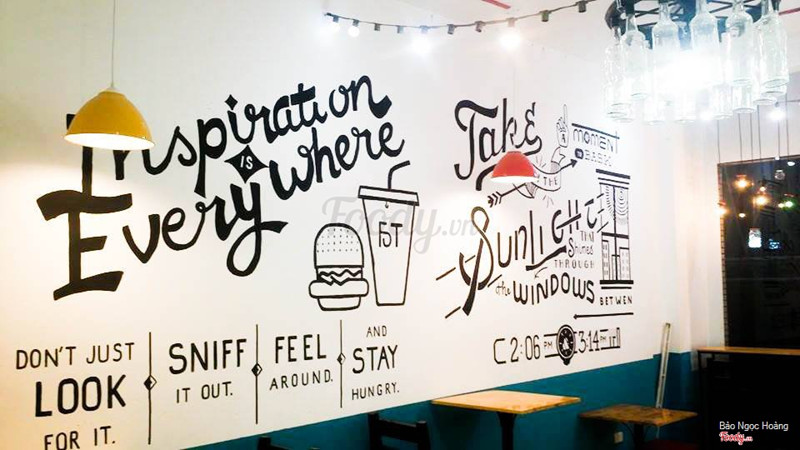 Inspiration
is
Everywhere
DON'T JUST
LOOK
FOR IT.
SNIFF
IT OUT.
FEEL
AROUND.
AND
STAY
HUNGRY.
Take
MOMENT
to BASK
IN THE
SUNLIGHT
THAT
Shined
THROUGH
the WINDOWS
BETWEN
2:06 PM
13:14
Foody.vn
Bảo Ngọc Hoàng
Foody.vn